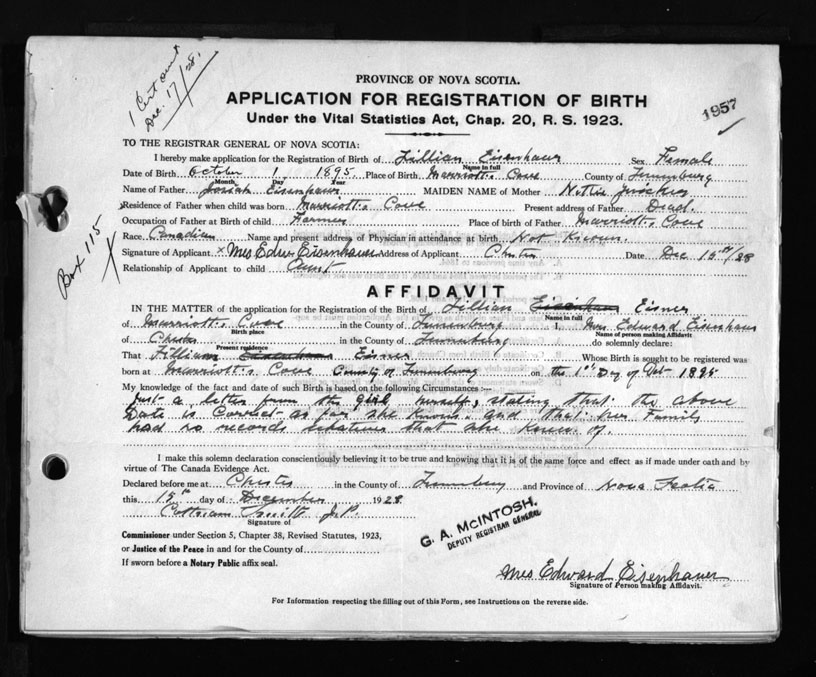 1 Cert sent
Dec. 17/28.
PROVINCE OF NOVA SCOTIA.
APPLICATION FOR REGISTRATION OF BIRTH
1957
Under the Vital Statistics Act, Chap. 20, R. S. 1923.
TO THE REGISTRAR GENERAL OF NOVA SCOTIA:
I hereby make application for the Registration of Birth of Lillian Eisenhauer Sex Female
Name in full
Date of Birth October 1 1895 Place of Birth Marriott's Cove County of Lunenburg
Month Day Year
Name of Father Josiah Eisenhauer MAIDEN NAME of Mother Nettie
Residence of Father when child was born Marriott's Cove Present address of Father Dead.
Occupation of Father at Birth of child Farmer Place of birth of Father Marriott's Cove
Race Canadian Name and present address of Physician in attendance at birth Not Known.
Signature of Applicant x Mrs Edw. Eisenhauer Address of Applicant Chester Date Dec 15th/28
Relationship of Applicant to child Aunt
Box 115
AFFIDAVIT
IN THE MATTER of the application for the Registration of the Birth of Lillian Eisenhauer Eisner
Name in full
of Marriott's Cove in the County of Lunenburg I, Mrs. Edward Eisenhauer
Birth place Name of person making Affidavit
of Chester in the County of Lunenburg do solemnly declare:
Present residence
That Lillian Eisenhauer Eisner Whose Birth is sought to be registered was
born at Marriott's Cove County of Lunenburg on the 1st Day of Oct 1895
My knowledge of the fact and date of such Birth is based on the following Circumstances :—
Just a letter from the girl herself, stating that the above
Date is Correct as far she knows. and that her Family
had no records whatever that she knew of.
I make this solemn declaration conscientiously believing it to be true and knowing that it is of the same force and effect as if made under oath and by
virtue of The Canada Evidence Act.
Declared before me at Chester in the County of Lunenburg and Province of Nova Scotia
this 15th day of December 1928
Smith J.P.
Signature of
G. A. McINTOSH.
DEPUTY REGISTRAR GENERAL
Commissioner under Section 5, Chapter 38, Revised Statutes, 1923,
or Justice of the Peace in and for the County of
If sworn before a Notary Public affix seal.
Mrs Edward Eisenhauer
Signature of Person making Affidavit.
For Information respecting the filling out of this Form, see Instructions on the reverse side.